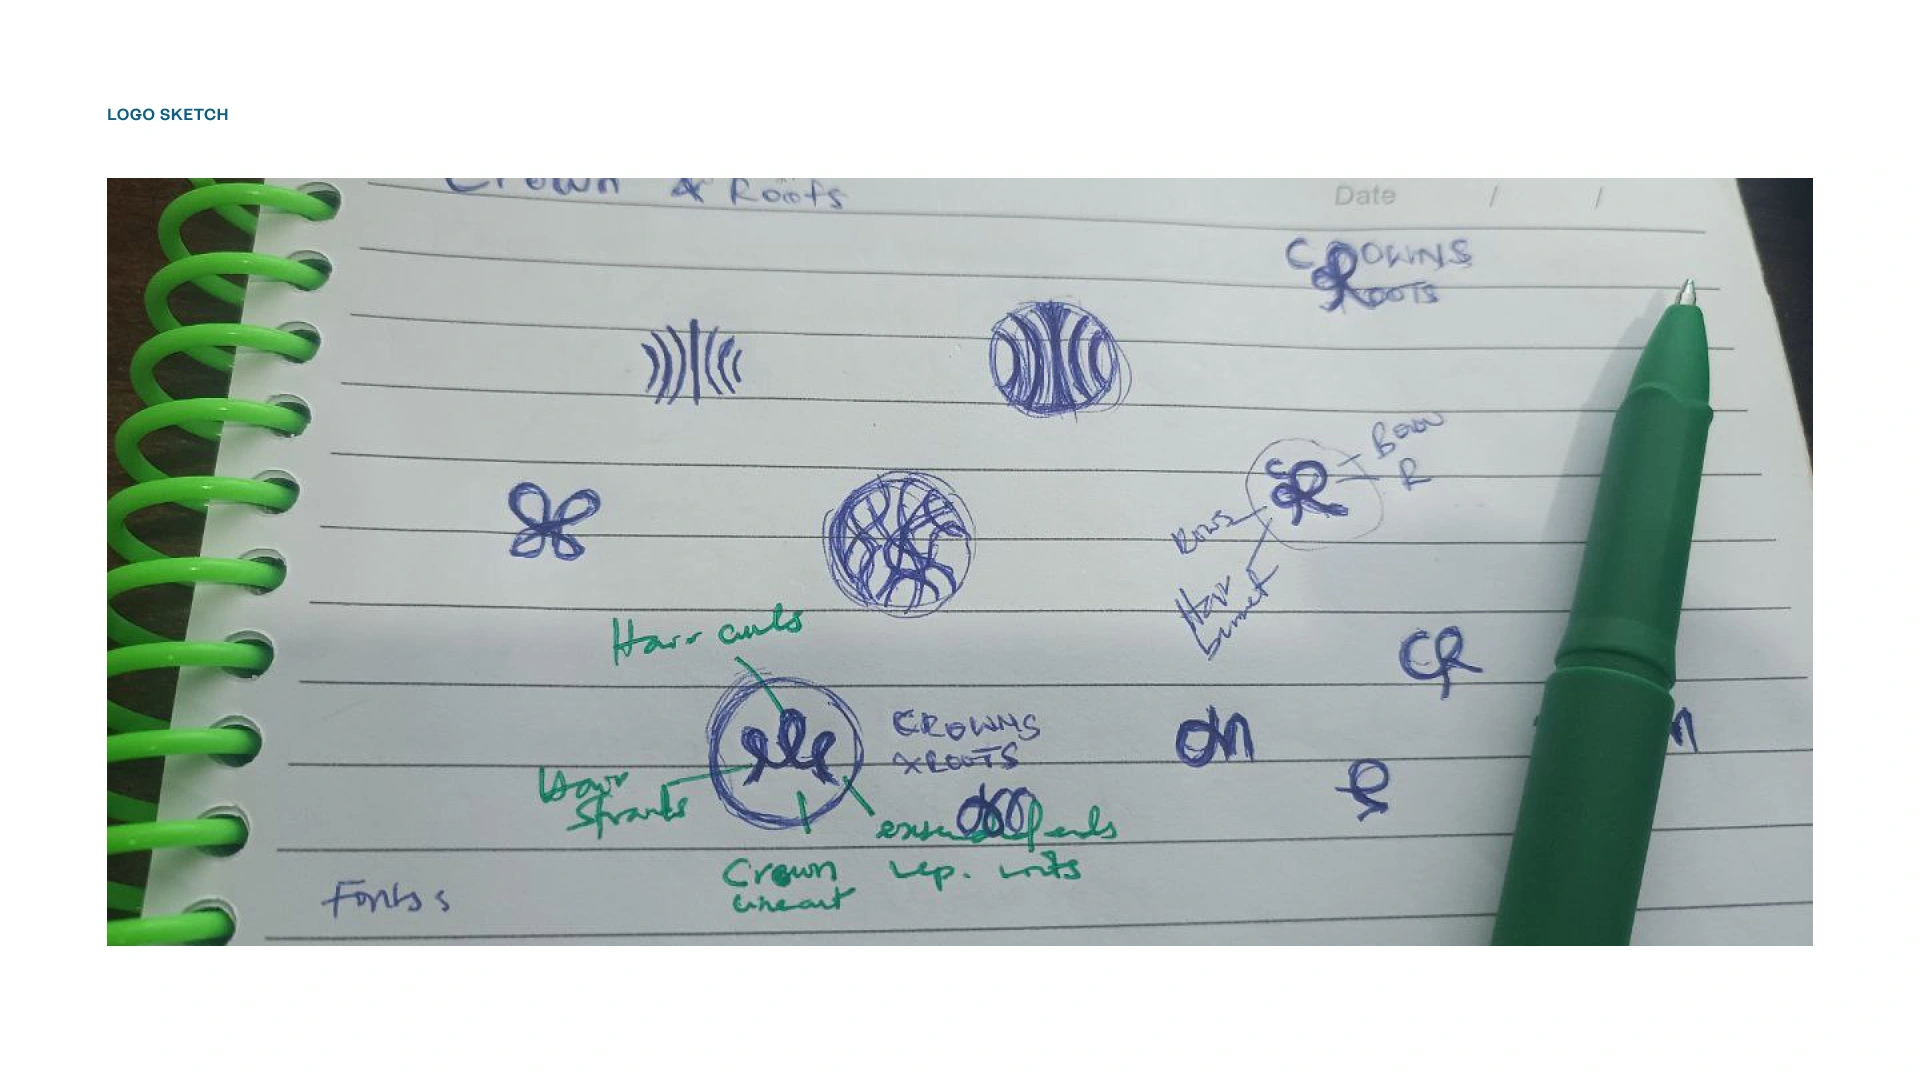 LOGO SKETCH
Crown & Roots
Date / /
CROWNS
ROOTS
Bow
R
C R
Rows
Hair
bunnet
Hair curls
CR
CROWNS
&ROOTS
Hair
Strands
Crown
lineart
rep. roots
Fonts